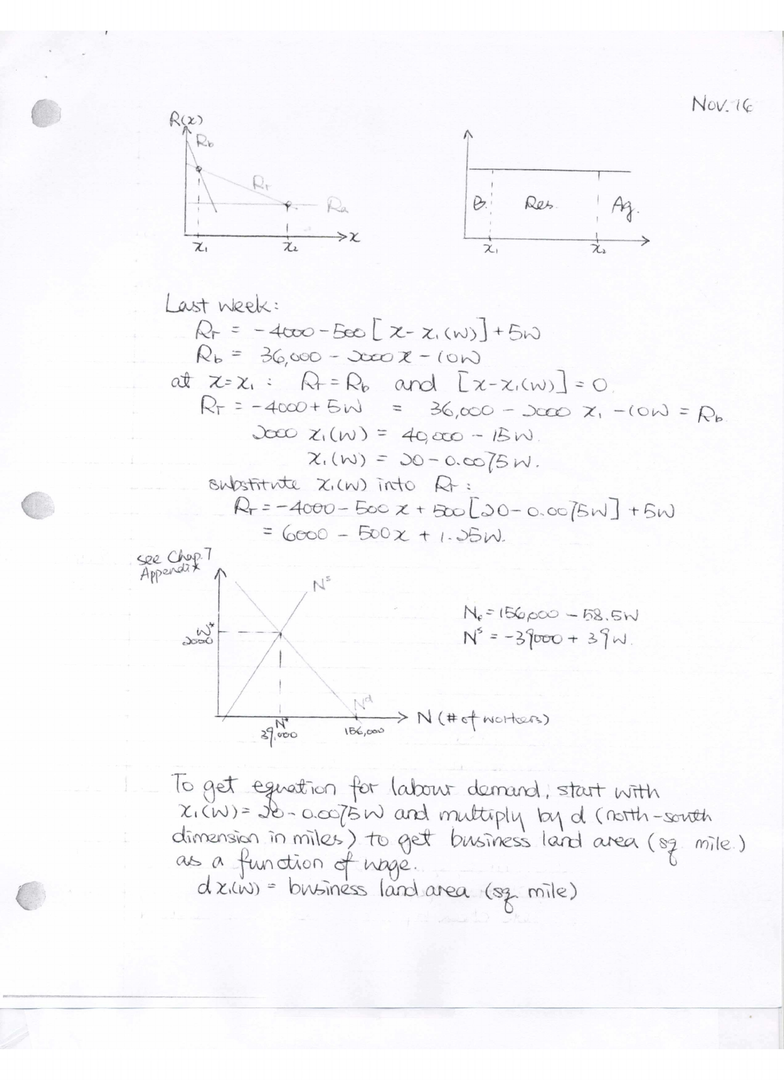 Nov. 16
R(x)
Rb
Rr
Ra
x
x₁
x₂
B.
Res.
Ag.
x₁
x₂
Last week:
Rr = -4000 - 500 [x - x₁(W)] + 5W
Rb = 36,000 - 2000 x - 10W
at x = x₁ : Rr = Rb and [x - x₁(W)] = 0.
Rr = -4000 + 5W = 36,000 - 2000 x₁ - 10W = Rb
2000 x₁(W) = 40,000 - 15W.
x₁(W) = 20 - 0.0075W.
substitute x₁(W) into Rr :
Rr = -4000 - 500 x + 500 [20 - 0.0075W] + 5W
= 6000 - 500x + 1.25W.
see Chap. 7
Appendix
Nˢ
W*
2000
Nᵈ
N (# of workers)
N*
39,000
156,000
= 156,000 - 58.5W
Nˢ = -39000 + 39W.
To get equation for labour demand, start with
x₁(W) = 20 - 0.0075W and multiply by d (north-south
dimension in miles) to get business land area (sq. mile)
as a function of wage.
d x₁(W) = business land area (sq. mile)